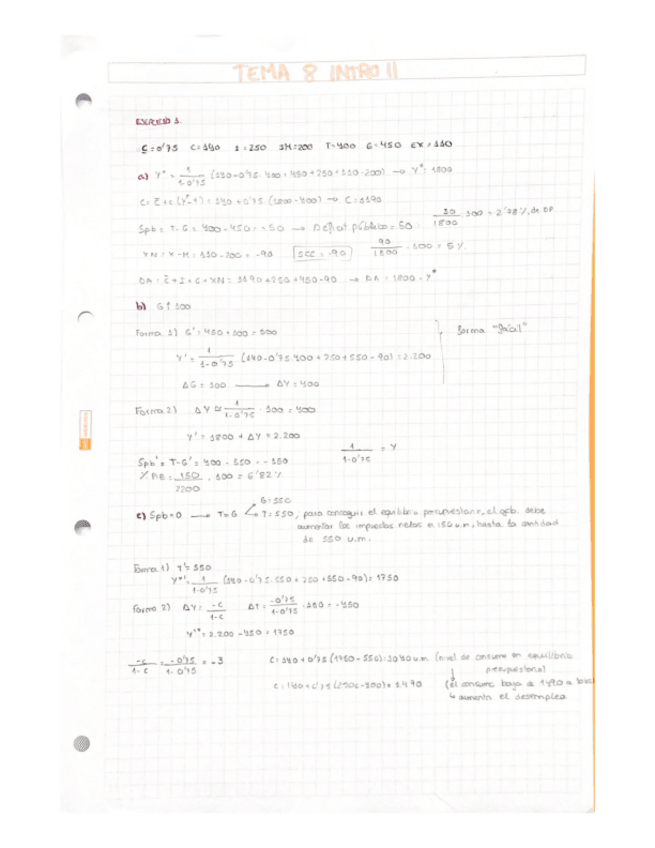 TEMA 8 INTRO II
EJERCICIO 1.
C=0'75 C=140 I=250 IM=200 T=400 G=450 EX=110
a) Y* = 1/1-0'75 (140-0'75·400+450+250+110-200) → Y*=1800
C= C̄+c(Y*-T) = 140+0'75·(1800-400) → C=1190
Spb= T-G= 400-450=-50 → Déficit público=50. 50/1800 ·100 = 2'78%, de DP
XN = X-M= 110-200 = -90 SCC=-90 90/1800 ·100 = 5%.
DA = C̄+I+G+XN = 1190+250+450-90 → DA = 1800 = Y*
b) G↑100
Forma 1) G'=450+100=500
Y'= 1/1-0'75 (140-0'75·400+250+550-90)=2.200
Forma "fácil"
ΔG=100 → ΔY=400
Forma 2) ΔY = 1/1-0'75 ·100=400
Y'= 1800+ΔY=2.200
1/1-0'75 = 4
Spb'= T-G'= 400-550=-150
150/2200 ·100=6'82%
c) Spb=0 → T=G G=550
T=550, para conseguir el equilibrio presupuestario, el gob. debe
aumentar los impuestos netos en 150 u.m, hasta la cantidad
de 550 u.m.
Forma 1) T'=550
Y''= 1/1-0'75 (140-0'75·550+250+550-90)=1750
Forma 2) ΔY= -c/1-c ΔT= -0'75/1-0'75 ·150=-450
Y''=2.200-450=1750
-c/1-c = -0'75/1-0'75 = -3
C=140+0'75(1750-550)=1040u.m (nivel de consumo en equilibrio
presupuestario)
C=140+0'75(2200-400)=1.490 (el consumo baja de 1490 a 1040)
↳ aumenta el desempleo